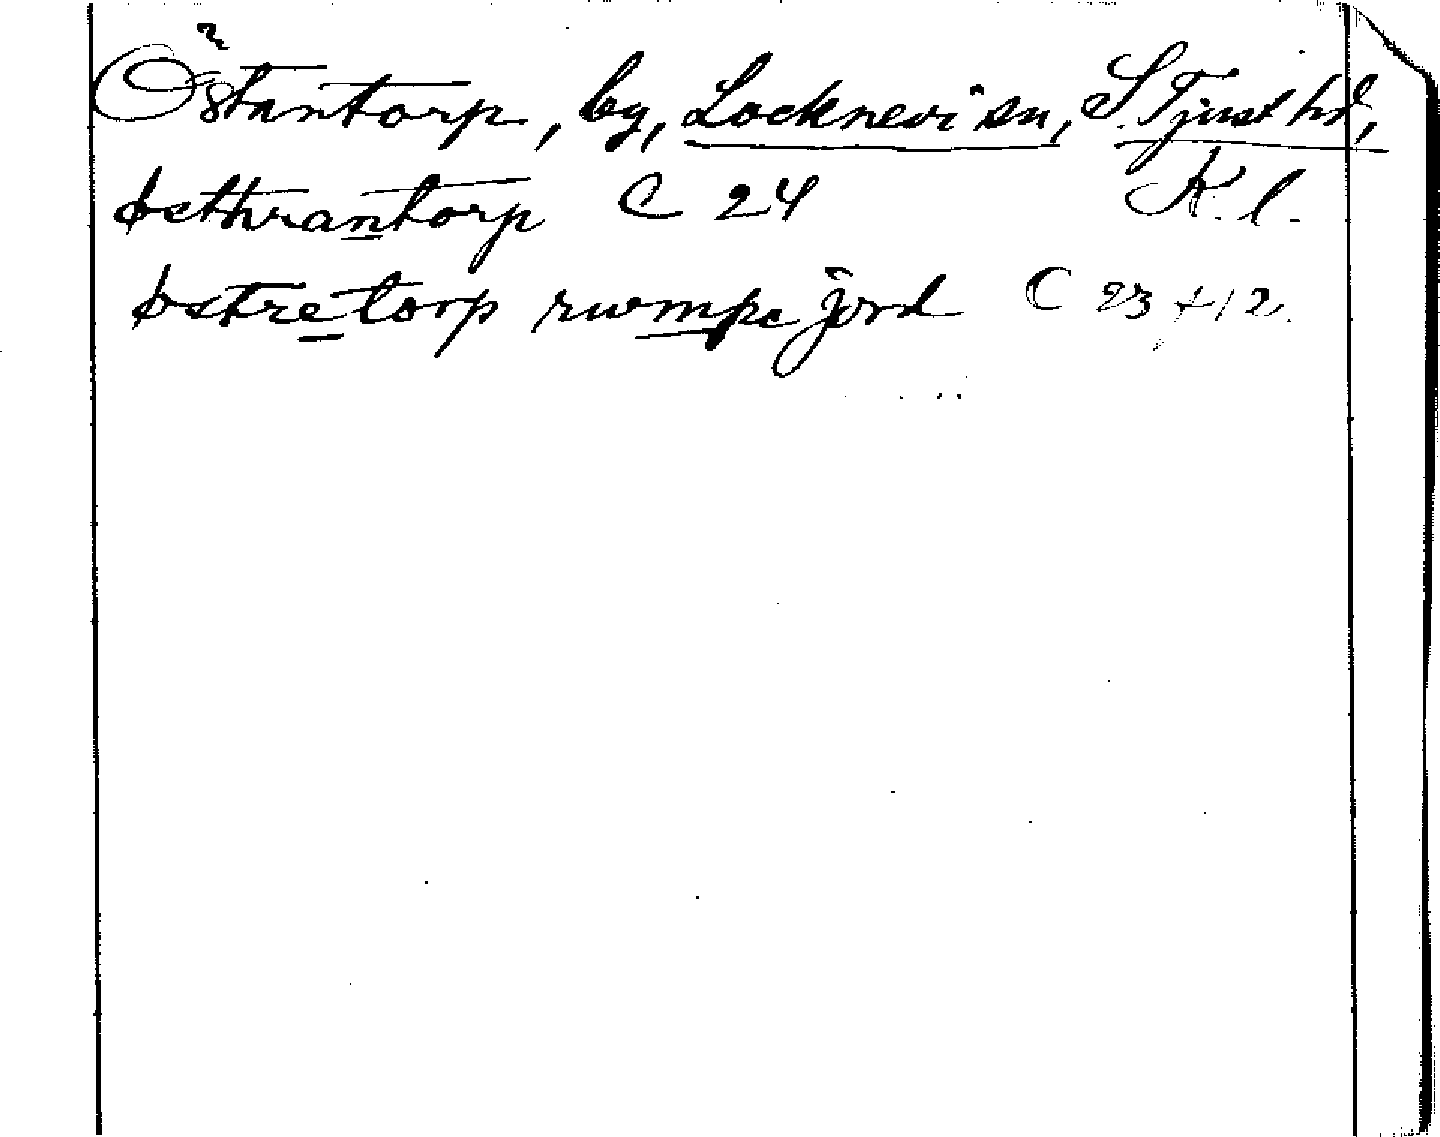 Östantorp, by, Locknevi sn, S. Tjust hd,
østhrantorp C 24 K. l.
østretorp rwmpe jord C 23 + 12.